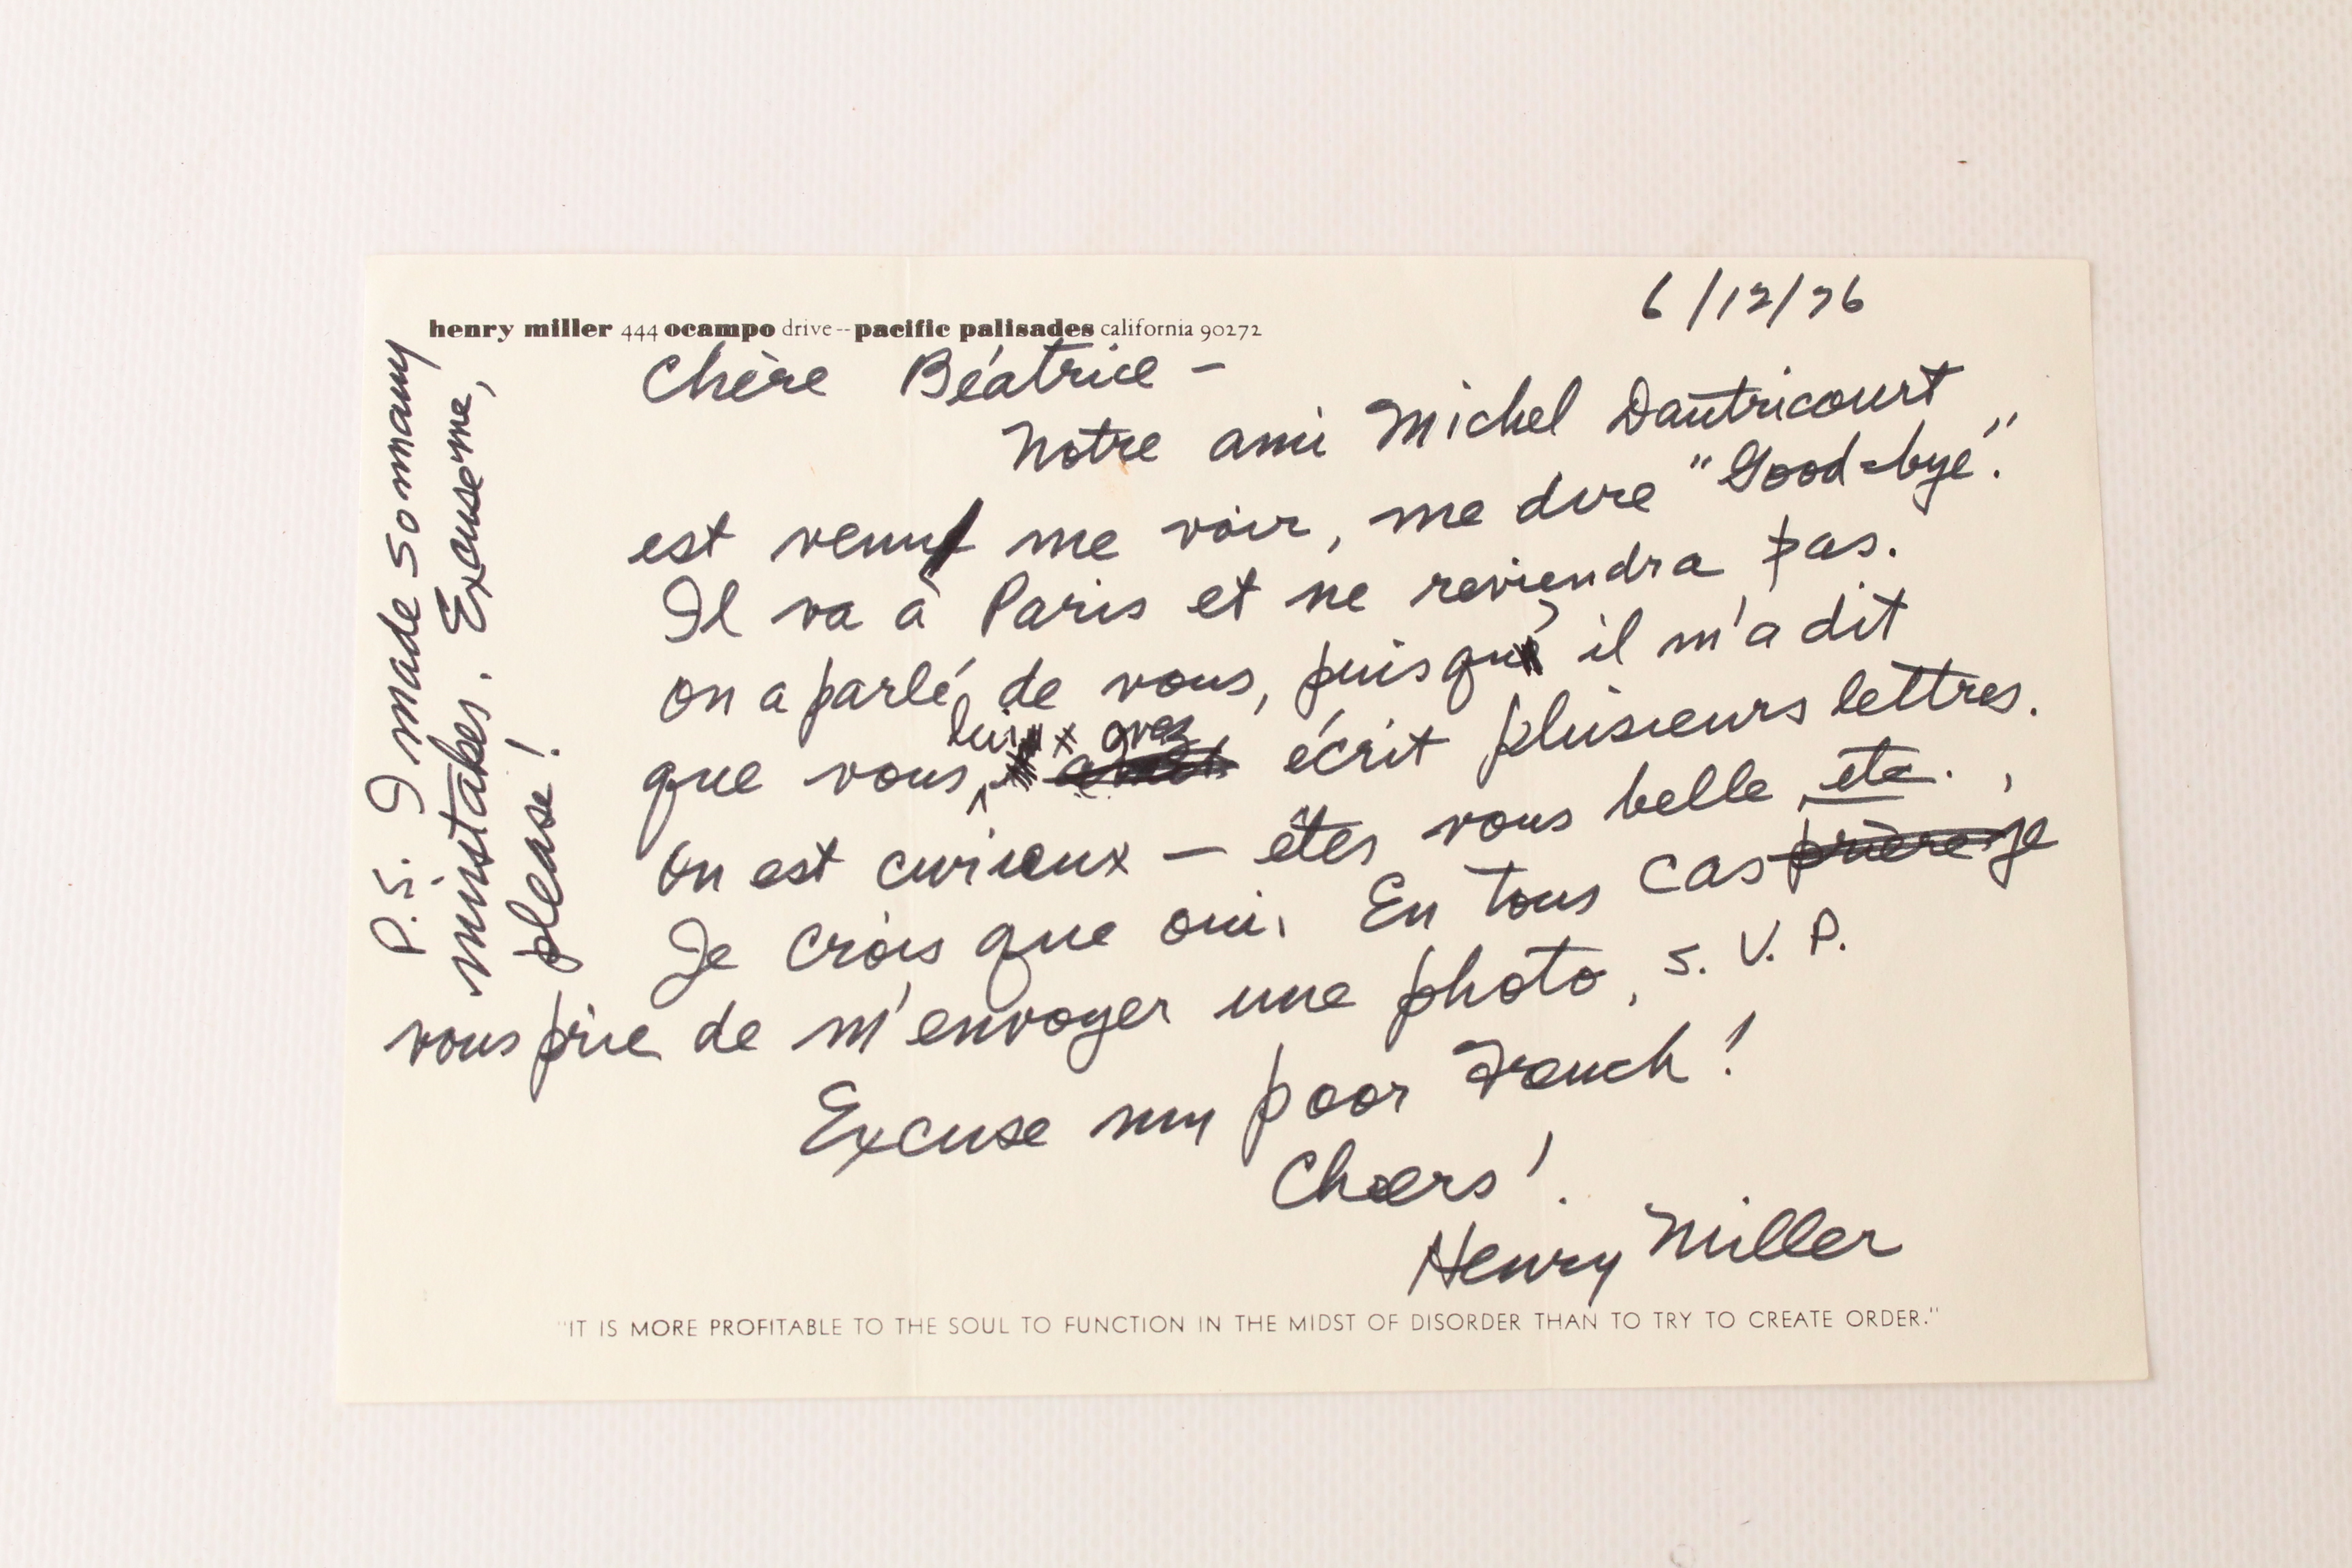 henry miller 444 ocampo drive--pacific palisades california 90272
6/12/76
Chère Béatrice –
Notre ami Michel Dautricourt
est venu me voir, me dire "Good-bye".
Il va à Paris et ne reviendra pas.
On a parlé de vous, puisqu' il m'a dit
que vous lui avez écrit plusieurs lettres.
On est curieux – êtes vous belle, etc.
Je crois que oui. En tous cas prière je
vous prie de m'envoyer une photo, S. V. P.
Excuse my poor French!
Cheers!
Henry Miller
"IT IS MORE PROFITABLE TO THE SOUL TO FUNCTION IN THE MIDST OF DISORDER THAN TO TRY TO CREATE ORDER."
P.S. I made so many
mistakes. Excuse me,
please!